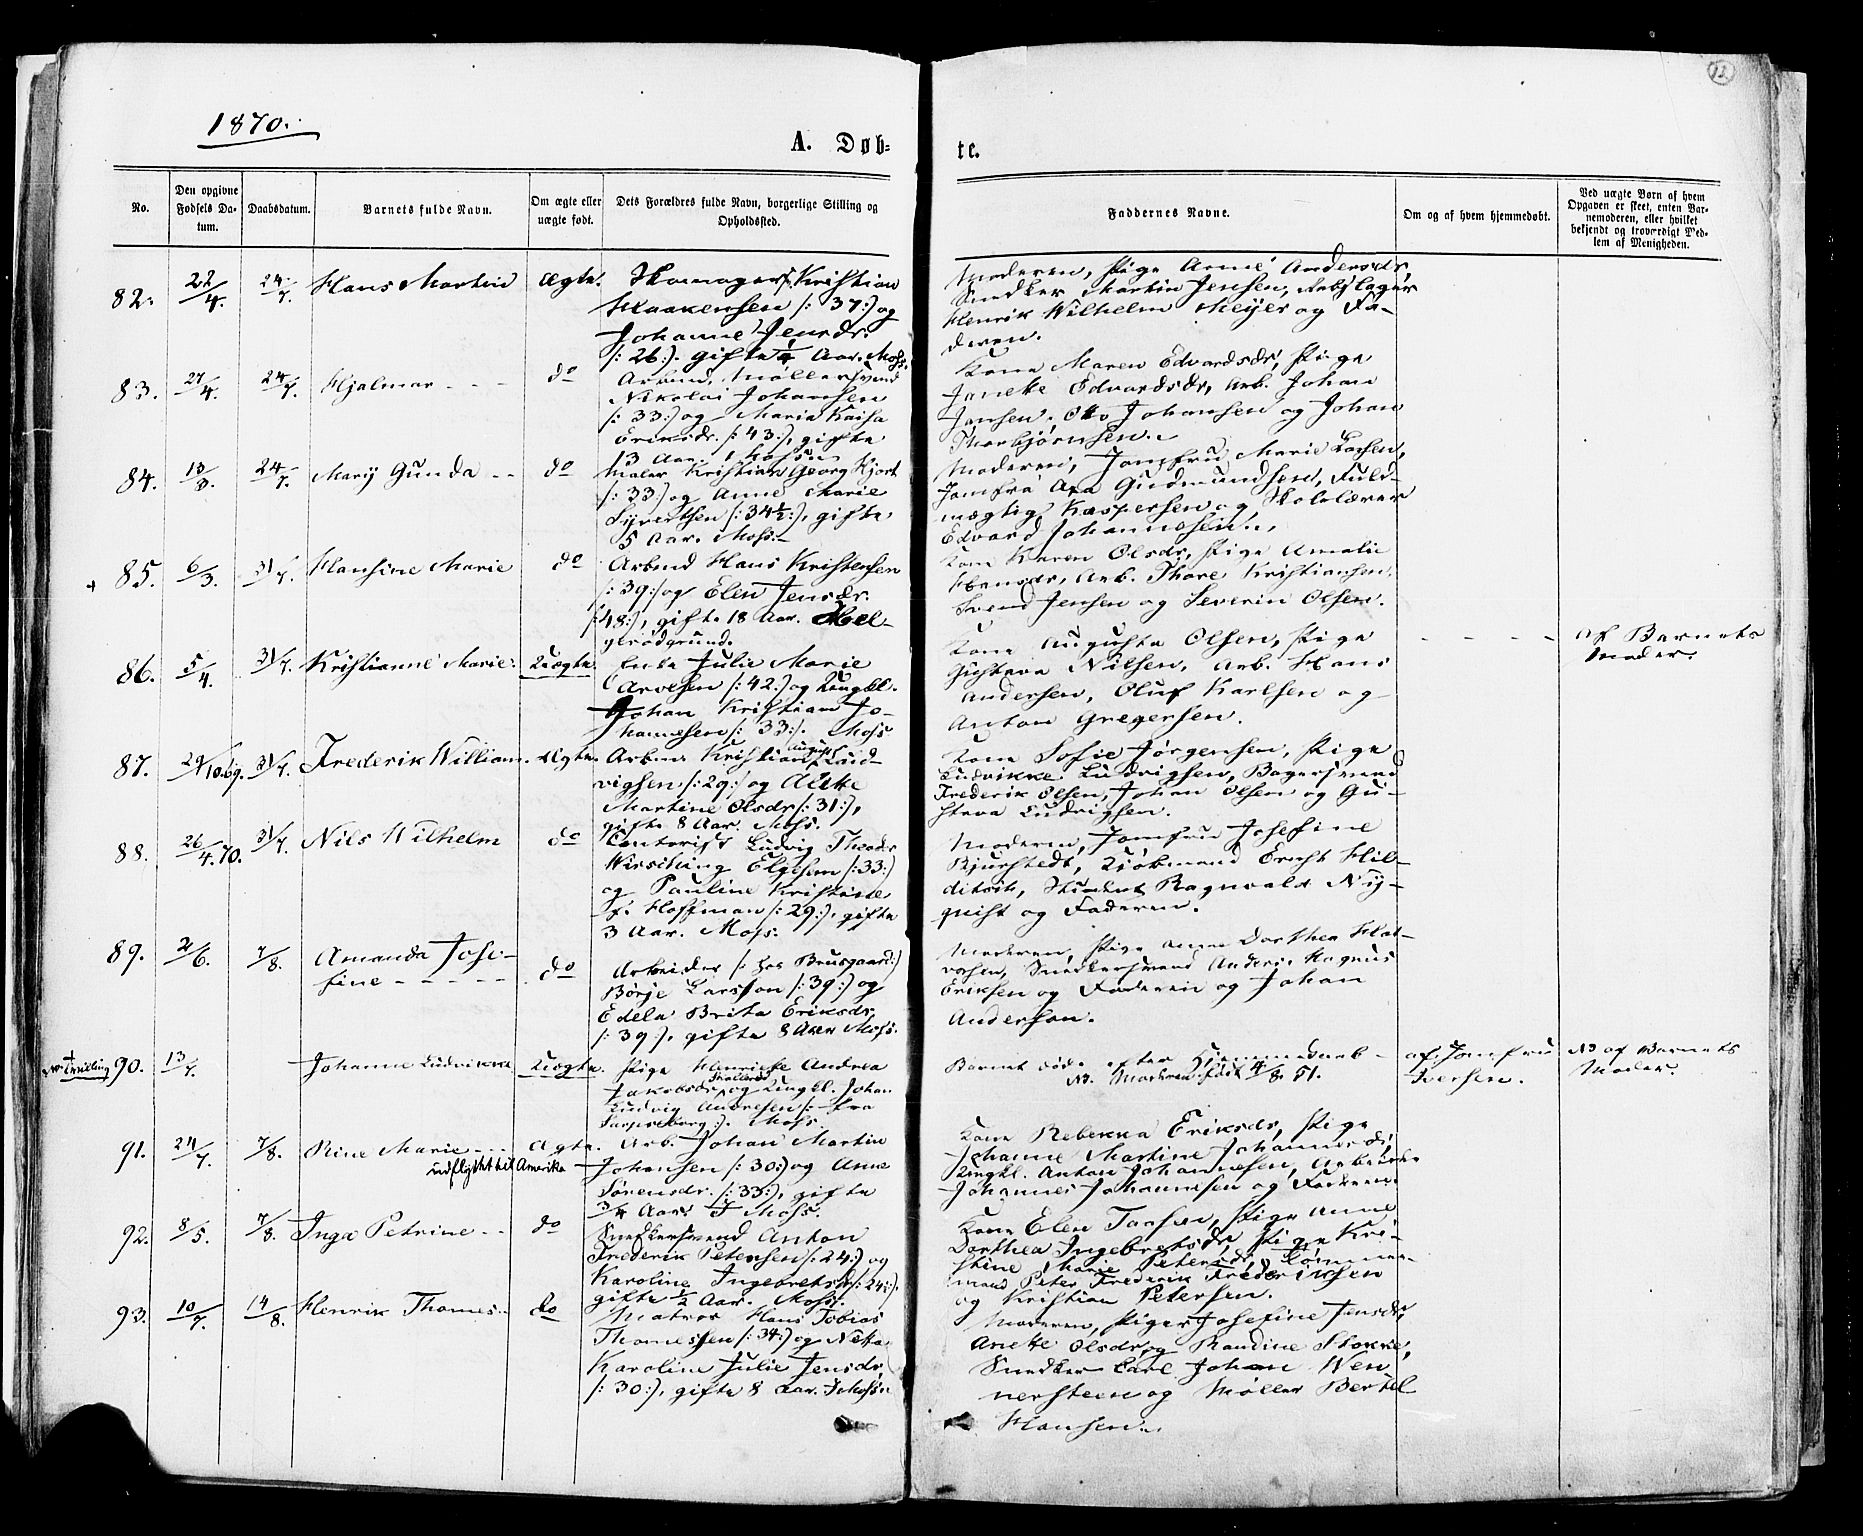 12
1870.
A. Døb=
te.
No.
Den opgivne Fødsels Da-
tum.
Daabsdatum.
Barnets fulde Navn.
Om ægte eller
uægte født.
Dets Forældres fulde Navn, borgerlige Stilling og
Opholdssted.
Faddernes Navne.
Om og af hvem hjemmedøbt.
Ved uægte Børn af hvem
Opgaven er skeet, enten Bar-
nemoderen, eller hvilket
bekjendt og troværdigt Med-
lem af Menigheden.
82. 22/4. 24/7. Hans Martin Ægte. Skomager Kristian
Haakensen /: 37:) og
Johanne Jensdr.
/: 26:). gifte 1/4 Aar. Moss.
Moderen, Pige Anne Andersdr,
Snedker Martin Jensen,
Henrik Wilhelm Meijer og Fa-
deren.
83. 27/4. 24/7. Hjalmar - - - do Arbmd. Møllersvend
Nikolai Johansen
/: 33:) og Maria Kaisa
Eriksdr. /: 43:), gifte
13 Aar. Moss
Kone Maren Edvardsdr, Pige
Janeke Edvardsdr, Arb. Johan
Jansen, Otto Johansen og Johan
Thorbjørnsen.
84. 13/3. 24/7. Marij Gunda - - do Maler Kristian Georg Hjort
/: 33:) og Anne Marie
Syvertsen /: 34½:), gifte
5 Aar. Moss.
Moderen, Jomfru Marie Larsen,
Jomfru Gudmundsen, Fuld-
mægtig Kaspersen og Skolelærer
Edvard Johannesen.
85. 6/3. 31/7. Hansine Marie do Arbmd Hans Kristensen
/: 39:) og Elen Jensdr.
/: 48:), gifte 18 Aar. Hel-
gerødgrund.
Kone Karen Olsdr, Pige Amalie
Hansdr, Arb. Thore Kristiansen,
Svend Jensen og Severin Olsen.
86. 5/4. 31/7. Kristianne Marie. Uægte. Enke Julie Marie
Arvesen /: 42:) og Ungkl.
Johan Kristian Jo-
hannesen /: 33:). Moss
Kone Augusta Olsen, Pige
Gustava Nilsen, Arb. Hans
Andersen, Oluf Karlsen og
Anton Gregersen.
- - - -
Af Barnets
Moder.
87. 29/10.69. 31/7. Frederik William. Ægte. Arbmd Kristian August Lud-
vigsen /: 29:) og Alette
Martine Olsdr /: 31:),
gifte 8 Aar. Moss.
Kone Sofie Jørgensen, Pige
Ludvikke Ludvigsen, Bagersvend
Frederik Olsen, Johan Olsen og Gu-
stava Ludvigsen.
88. 26/4.70. 31/7. Nils Wilhelm do Contorist Ludvig Theodr
Wirsching Elgesem /: 33:)
og Pauline Kristine
f. Hoffman /: 29:), gifte
3 Aar. Moss.
Moderen, Jomfru Josefine
Bjurstedt, Kjøbmand Ernst Hil-
ditsch, Student Ragnvald Nij-
quist og Faderen.
89. 2/6. 7/8. Amanda Jose-
fine - - - - - do Arbeider /: hos Brusgaard:)
Børje Larsson /: 39:) og
Edela Brita Eriksdr.
/: 39:), gifte 8 Aar Moss.
Moderen, Pige Anne Dorthea Hal-
vorsen, Snedkersvend Anders Magnus
Eriksen og Faderen og Johan
Anderson.
Tvilling 90. 13/7. Johanne Ludvikka Uægte. Pige Henriette Andrea
Jakobsdr og Ungkl. Johan
Ludvig Andresen /: fra
Sarpsborg:). Moss.
Barnet døde efter Hjemmedaab -
NB. Moderen født 4/8 51.
af Jomfru
Iversen.
NB af Barnets
Moder.
91. 24/7. 7/8. Rine Marie - - - Ægte. Arb. Johan Martin
udflyttet til Amerika
Johansen /: 30:) og Anne
Sørensdr. /: 33:), gifte
3/4 Aar. Moss.
Kone Rebekka Eriksdr, Pige
Johanne Martine Johannesdr,
Ungkl. Anton Johannesen, Arbeider
Johannes Johannesen og Faderen.
92. 8/5. 7/8. Inga Petrine - - do Snedkersvend Anton
Frederik Petersen /: 24:) og
Karoline Ingebretsdr /: 24:).
gifte 1/2 Aar. Moss.
Kone Elen Larsen, Pige Anne
Dorthea Ingebretsdr, Pige Kri-
stine Marie Petersdr, Tømmer-
mand Peter Frederik Frederiksen
og Kristian Petersen.
93. 10/7. 14/8. Henrik Thomas. do Matros Hans Tobias
Thomessen /: 34:) og Netta
Karoline Julie Jensdr,
/: 30:), gifte 8 Aar. I Moss
Moderen, Piger Josefine Jensdr,
Anette Olsdr og Randine Stokke,
Snedker Carl Johan Wen
nersteen og Møller Bertel
Hansen.